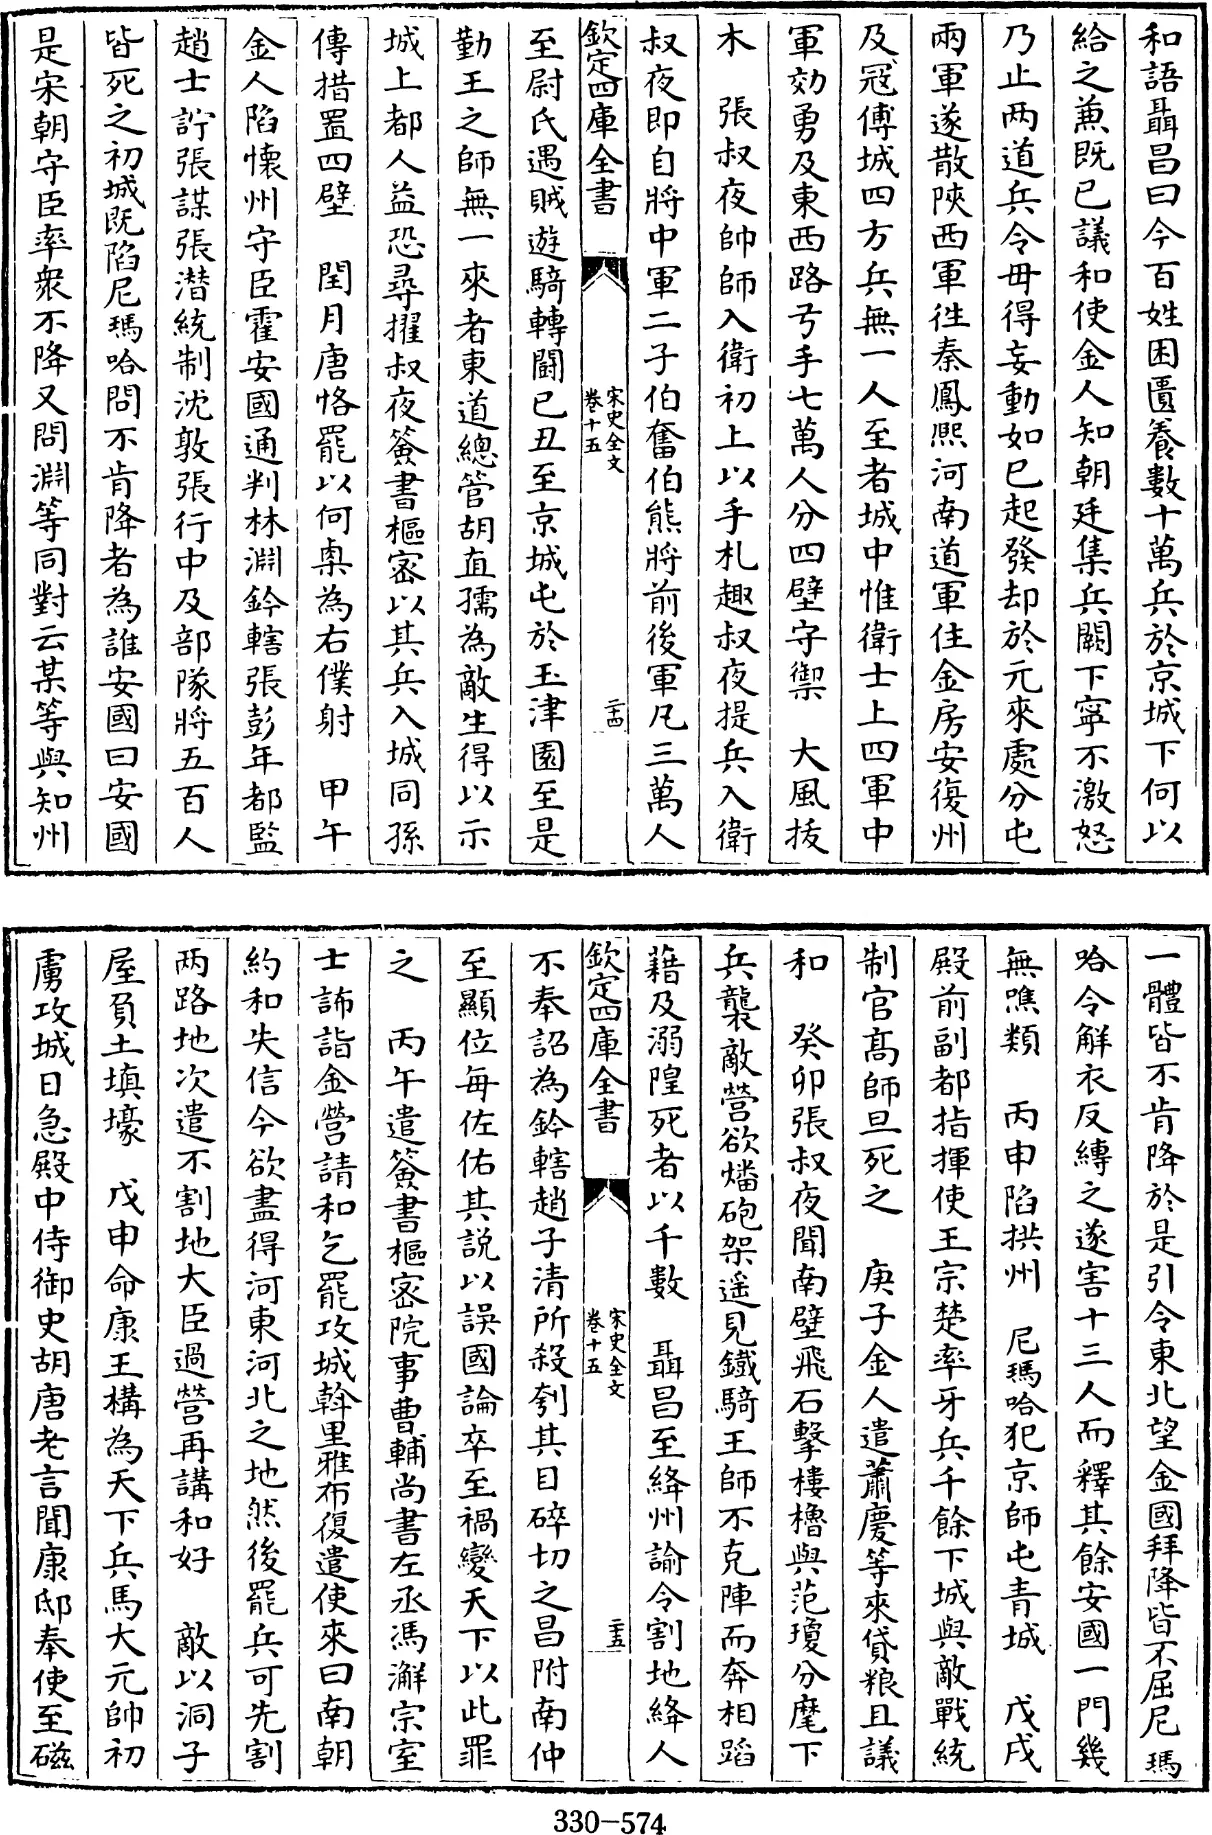 和語聶昌曰今百姓困匱養數十萬兵於京城下何以
給之兼既已議和使金人知朝廷集兵闕下寧不激怒
乃止两道兵令毋得妄動如已起發却於元來處分屯
兩軍遂散陝西軍徃秦鳳熈河南道軍住金房安復州
及冦傅城四方兵無一人至者城中惟衛士上四軍中
軍効勇及東西路弓手七萬人分四壁守禦　大風拔
木　張叔夜帥師入衛初上以手札趣叔夜提兵入衛
叔夜即自將中軍二子伯奮伯熊將前後軍凡三萬人
欽定四庫全書
宋史全文
卷十五
二十四
至尉氏遇賊遊騎轉鬬已丑至京城屯於玉津園至是
勤王之師無一來者東道總管胡直孺為敵生得以示
城上都人益恐尋擢叔夜簽書樞密以其兵入城同孫
傳措置四壁　閏月唐恪罷以何㮚為右僕射　甲午
金人陷懷州守臣霍安國通判林淵鈐轄張彭年都監
趙士詝張諶張潜統制沈敦張行中及部隊將五百人
皆死之初城既陷尼瑪哈問不肯降者為誰安國曰安國
是宋朝守臣率衆不降又問淵等同對云某等與知州
一體皆不肯降於是引令東北望金國拜降皆不屈尼瑪
哈令解衣反縛之遂害十三人而釋其餘安國一門幾
無噍類　丙申陷拱州　尼瑪哈犯京師屯青城　戊戌
殿前副都指揮使王宗楚率牙兵千餘下城與敵戰統
制官髙師旦死之　庚子金人遣蕭慶等來貸粮且議
和　癸卯張叔夜聞南壁飛石擊樓櫓與范瓊分麾下
兵襲敵營欲燔砲架遥見鐵騎王師不克陣而奔相蹈
藉及溺隍死者以千數　聶昌至絳州諭令割地絳人
欽定四庫全書
宋史全文
卷十五
二十五
不奉詔為鈐轄趙子清所殺刳其目碎切之昌附南仲
至顯位每佐佑其説以誤國論卒至禍變天下以此罪
之　丙午遣簽書樞密院事曹輔尚書左丞馮澥宗室
士㒟詣金營請和乞罷攻城斡里雅布復遣使來曰南朝
約和失信今欲盡得河東河北之地然後罷兵可先割
两路地次遣不割地大臣過營再講和好　敵以洞子
屋負土填壕　戊申命康王構為天下兵馬大元帥初
虜攻城日急殿中侍御史胡唐老言聞康邸奉使至磁
330-574